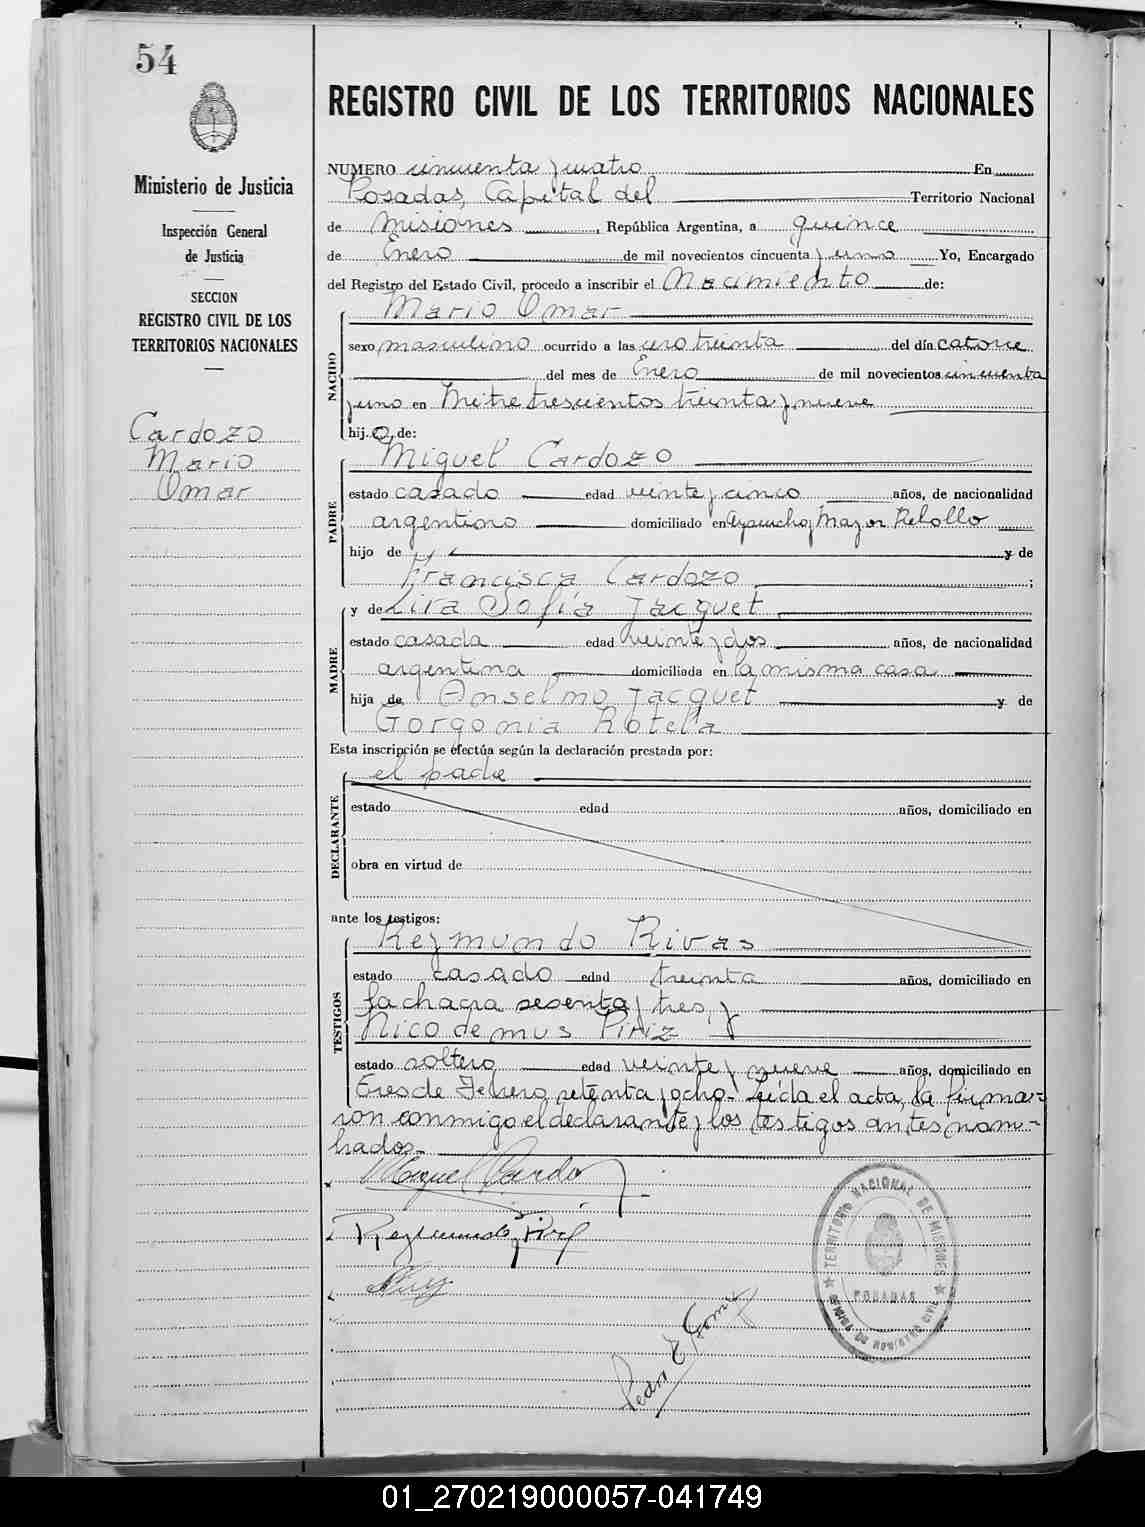 54
Ministerio de Justicia
Inspección General
de Justicia
SECCION
REGISTRO CIVIL DE LOS
TERRITORIOS NACIONALES
Cardozo
Mario
Omar
REGISTRO CIVIL DE LOS TERRITORIOS NACIONALES
NUMERO cincuenta y cuatro En
Posadas, Capital del Territorio Nacional
de Misiones, República Argentina, a quince
de Enero de mil novecientos cincuenta y uno Yo, Encargado
del Registro del Estado Civil, procedo a inscribir el Nacimiento de:
NACIDO
Mario Omar
sexo masculino ocurrido a las cero treinta del día catorce
del mes de Enero de mil novecientos cincuenta
y uno en Mitre trescientos treinta y nueve
hij.o de:
PADRE
Miguel Cardozo
estado casado edad veinte y cinco años, de nacionalidad
argentino domiciliado en Ayacucho y Mayor Rebollo
hijo de y de
Francisca Cardozo ;
MADRE
y de Lira Sofía Jacquet
estado casada edad veinte y dos años, de nacionalidad
argentina domiciliada en la misma casa
hija de Anselmo Jacquet y de
Gorgonia Rotela
Esta inscripción se efectúa según la declaración prestada por:
DECLARANTE
el padre
estado edad años, domiciliado en
obra en virtud de
ante los testigos:
TESTIGOS
Reymundo Rivas
estado casado edad treinta años, domiciliado en
la chacra sesenta y tres, y
Nicodemus Piriz
estado soltero edad veinte y nueve años, domiciliado en
Tres de Febrero setenta y ocho. Leída el acta, la firma-
ron conmigo el declarante y los testigos antes nom-
brados.
Miguel Cardozo
Pedro E Gomez
TERRITORIO NACIONAL DE MISIONES
POSADAS
OFICINA DE REGISTRO CIVIL
01_270219000057-041749